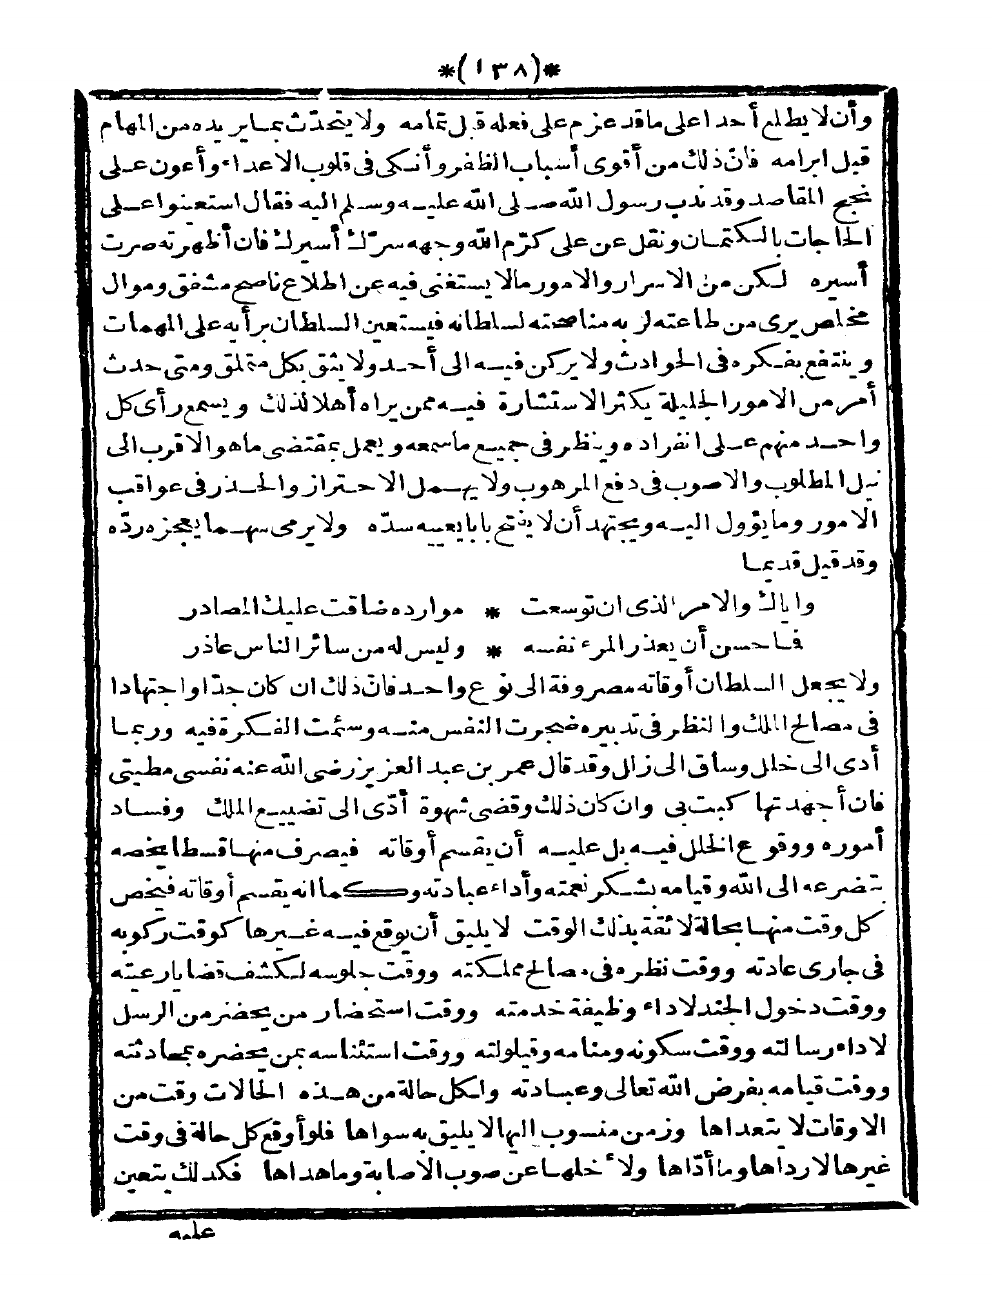 *(١٣٨)*
وأن لا يطلع أحدا على ما قد عزم على فعله قبل تمامه ولا يتحدّث بما يريده من المهام
قبل ابرامه فانّ ذلك من أقوى أسباب الظفر وأنكى فى قلوب الاعداء وأعون على
نجح المقاصد وقد ندب رسول الله صلى الله عليه وسلم اليه فقال استعينوا على
الحاجات بالكتمان ونقل عن على كرّم الله وجهه سرّك أسيرك فان أظهرته صرت
أسيره لكن من الاسرار والامور مالا يستغنى فيه عن اطلاع ناصح مشفق وموال
مخلص يرى من طاعته لربه مناصحته لسلطانه فيستعين السلطان برأيه على المهمات
وينتفع بفكره فى الحوادث ولا يركن فيه الى أحد ولا يثق بكل متملق ومتى حدث
أمر من الامور الجليلة يكثر الاستشارة فيه ممن يراه أهلا لذلك ويسمع رأى كل
واحد منهم على انفراده وينظر فى جميع ما سمعه ويعمل بمقتضى ما هو الاقرب الى
نيل المطلوب والاصوب فى دفع المرهوب ولا يهمل الاحتراز والحذر فى عواقب
الامور وما يؤول اليه ويجتهد أن لا يفتح بابا يعييه سدّه ولا يرمى سهما يعجزه ردّه
وقد قيل قديما
واياك والامر الذى ان توسعت * موارده ضاقت عليك المصادر
فما حسن أن يعذر المرء نفسه * وليس له من سائر الناس عاذر
ولا يجعل السلطان أوقاته مصروفة الى نوع واحد فانّ ذلك ان كان جدّا واجتهادا
فى مصالح الملك والنظر فى تدبيره ضجرت النفس منه وسئمت الفكرة فيه وربما
أدى الى خلل وساق الى زلل وقد قال عمر بن عبد العزيز رضى الله عنه نفسى مطيتى
فان أجهدتها كبت بى وان كان ذلك وقضى شهوة أدّى الى تضييع الملك وفساد
أموره ووقوع الخلل فيه بل عليه أن يقسم أوقاته فيصرف منها قسطا يخصه
بتضرعه الى الله وقيامه بشكر نعمته وأداء عبادته وكما انه يقسم أوقاته فيخص
كل وقت منها بحالة لائقة بذلك الوقت لا يليق أن يوقع فيه غيرها كوقت ركوبه
فى جارى عادته ووقت نظره فى مصالح مملكته ووقت جلوسه لكشف قضايا رعيته
ووقت دخول الجند لاداء وظيفة خدمته ووقت استحضار من يحضر من الرسل
لاداء رسالته ووقت سكونه ومنامه وقيلولته ووقت استئناسه بمن يحضره بمحادثته
ووقت قيامه بفرض الله تعالى وعبادته ولكل حالة من هذه الحالات وقت من
الاوقات لا يتعداها وزمن منسوب اليها لا يليق به سواها فلو أوقع كل حالة فى وقت
غيرها لارداها وما أدّاها ولأخلها عن صوب الاصابة وما هداها فكذلك يتعين
عليه